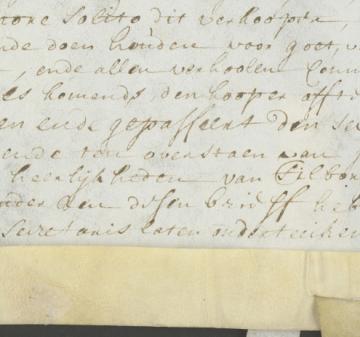 more solito dit verkoopen,
nde doen houden voor goet, v
, ende allen verhoolen Comm
es komende, den kooper offte
en ende gepasseert den se
ende ten overstaen van
heerlijkheden van Tilbor
onder den desen brieff heb
Secretaris laten onderteeken